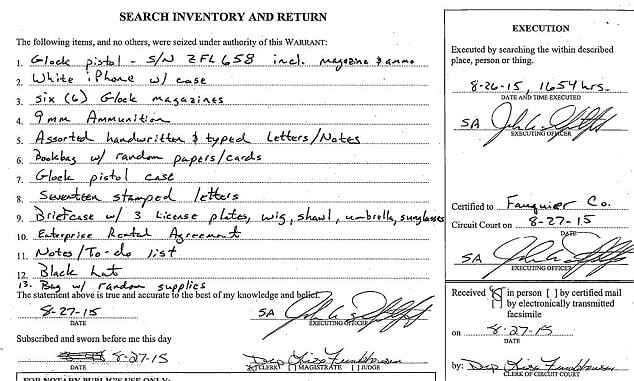 SEARCH INVENTORY AND RETURN
The following items, and no others, were seized under authority of this WARRANT:
1. Glock pistol - S/N ZFL658 incl. magazine & ammo
2. White iPhone w/ case
3. six (6) Glock magazines
4. 9mm Ammunition
5. Assorted handwritten & typed Letters/Notes
6. Bookbag w/ random papers/cards
7. Glock pistol case
8. Seventeen stamped letters
9. Briefcase w/ 3 License plates, wig, shawl, umbrella, sunglasses
10. Enterprise Rental Agreement
11. Notes/To-do list
12. Black hat
13. Bag w/ random supplies
The statement above is true and accurate to the best of my knowledge and belief.
8-27-15 SA
DATE EXECUTING OFFICER
Subscribed and sworn before me this day
8-27-15 Dep
DATE [ ] CLERK [ ] MAGISTRATE [ ] JUDGE
FOR NOTARY PUBLIC'S USE ONLY:
EXECUTION
Executed by searching the within described
place, person or thing.
8-26-15, 1654 hrs.
DATE AND TIME EXECUTED
SA
EXECUTING OFFICER
Certified to Fauquier Co.
Circuit Court on 8-27-15
DATE
SA
EXECUTING OFFICER
Received [X] in person [ ] by certified mail
[ ] by electronically transmitted
facsimile
on 8-27-15
DATE
by: Dep
CLERK OF CIRCUIT COURT